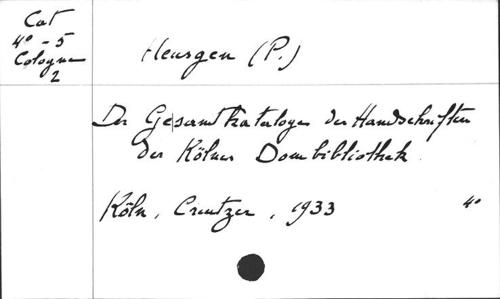 Cat
4° - 5
Cologne
2
Heusgen (P.)
Der Gesamtkataloges der Handschriften
der Kölner Dombibliothek
Köln, Creutzer, 1933 4°